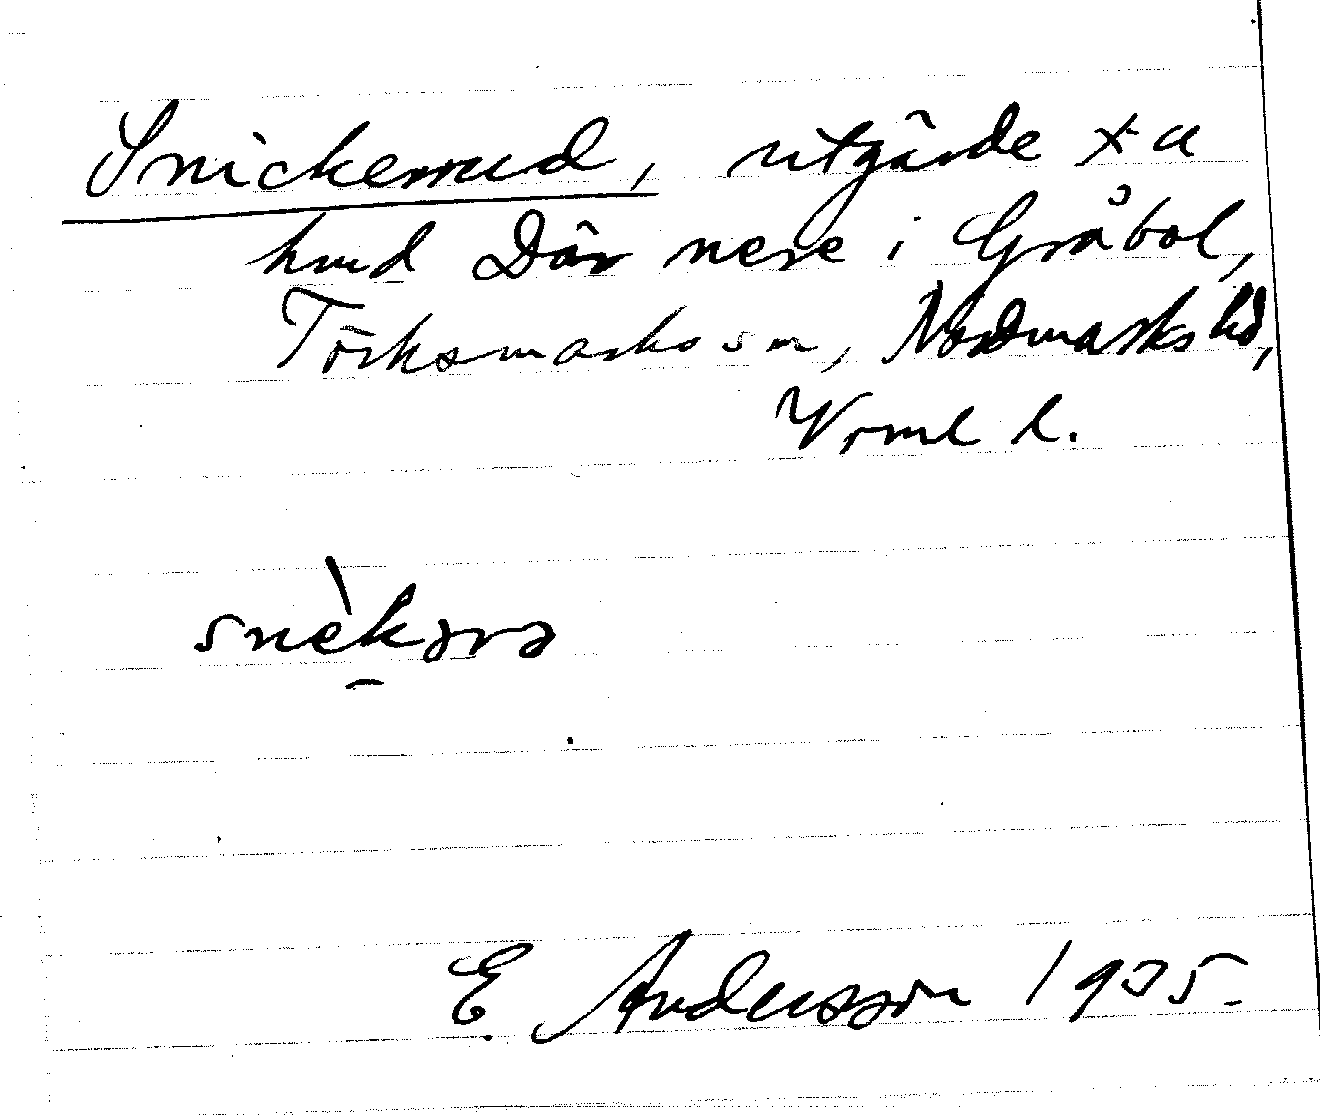 Snickerrud, utgärde + u
hmd Där nere i Gråbol,
Törksmarks sn, Nordmarks hd,
Vrml l.
snèkərə
E. Andersson 1935.